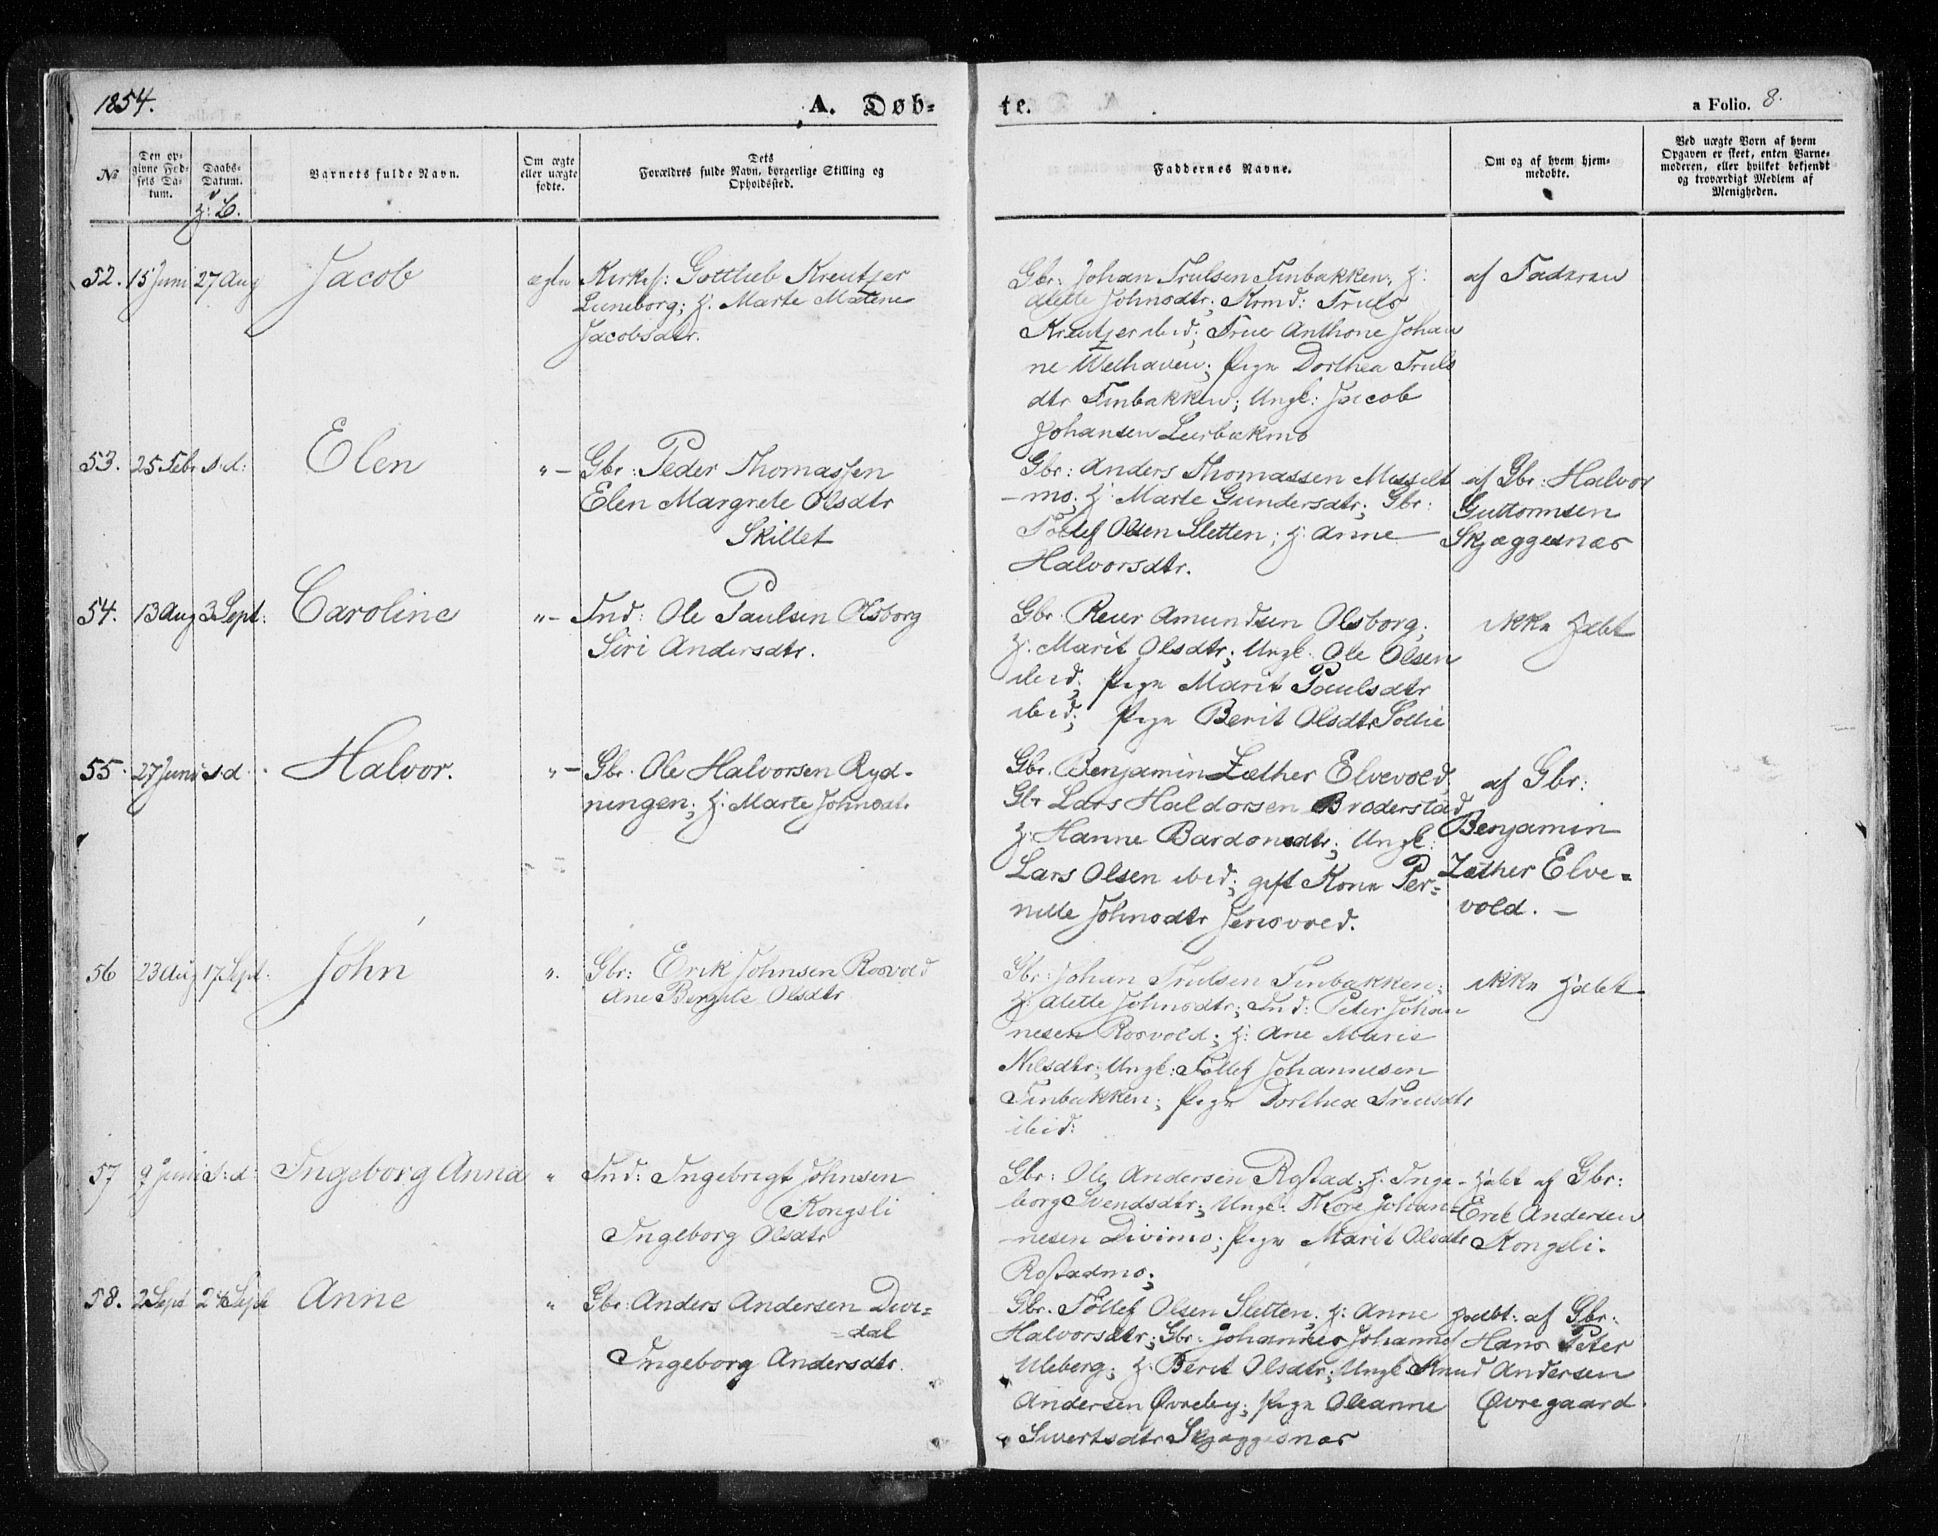 1854.
A. Døb-
te.
a Folio. 8.
№
Den op-
givne Fød-
sels Da-
tum.
Daabs-
Datum.
Barnets fulde Navn.
Om ægte
eller uægte
fødte.
Dets
Forældres fulde Navn, borgerlige Stilling og
Opholdssted.
Faddernes Navne.
Om og af hvem hjem-
medøbte.
Ved uægte Børn af hvem
Opgaven er skeet, enten Barne-
moderen, eller hvilket bekjendt
og troværdigt Medlem af
Menigheden.
52. 15 Juni 27 Aug Jacob ægte Kirkes: Gottlieb Kreutzer
Luneborg; H: Marte Matene
Jacobsdtr.
Gbr: Johan Trulsen Finbakken; H:
Alette Johnsdtr; Komd: Truls
Kreutzer ibid; Frue Anthone Johan
ne Welhaven; Pige Dorthea Truls
dtr Finbakken; Ungk: Jacob
Johansen
af Faderen
53. 25 Febr s.d: Elen "— Gbr: Peder Thomassen
Elen Margrete Olsdtr
Skillet
Gbr: Anders Thomassen Messelt
-mo; H: Marte Gundersdtr; Gbr:
Tollef Olsen Sletten; H: Anne
Halvorsdtr.
af Gbr: Halvor
Guttormsen
Skjæggesnæs
54. 13 Aug 3 Sept: Caroline "— Ind: Ole Paulsen Olsborg
Siri Andersdtr.
Gbr. Reier Amundsen Olsborg;
H. Marit Olsdtr; Ungk. Ole Olsen
ibid; Pige Marit Paulsdtr
ibid; Pige Berit Olsdtr Sollie
ikke Hdbt
55. 27 Juni s.d. Halvor. "— Gbr. Ole Halvorsen Ryd-
ningen; H: Marte Johnsdt.
Gbr. Benjamin Zæther Elvevold,
Gbr Lars Haldorsen Broderstad
H: Hanne Bardonsdtr; Ungk:
Lars Olsen ibid; gift Kone Per-
nille Johnsdtr Jensvold.
af Gbr:
Benjamin
Zæther Elve=
vold. —
56 23 Aug 17 Sept. John ". Gbr: Erik Johnsen Rosvold
Ane Bergite Olsdtr
Gbr: Johan Trulsen Finbakken;
H. Alette Johnsdtr; Ind: Peter Johan
nesen Rosvold; H: Ane Marie
Nilsdtr; Ungk: Tollef Johannesen
Finbakken; Pige Dorthea Trulsdtr
ibid:
ikke Hdbt
57 9 Juni s:d: Ingeborg Anna " Ind: Ingebrigt Johnsen
Kongsli
Ingeborg Olsdtr
Gbr: Ole Andersen Rostad; H. Inge-
borg Svendsdtr; Ungk: Thore Johan=
-nesen Divimo; Pige Marit Olsdtr
Rostadmo;
Hdbt af Gbr:
Erik Andersen
Kongsli.
58. 2 Sept 24 Sept Anne " Gbr: Anders Andersen Divi=
=dal
Ingeborg Andersdtr.
Gbr. Tollef Olsen Sletten; H: Anne
Halvorsdtr; Gbr: Johannes Johannes
Uleberg; H: Berit Olsdtr; Ungk Knud
Andersen Øvreby; Pige Oleanne
Sivertsdtr Skjæggesnæs
Hdbt: af Gbr:
Hans Peter
Andersen
Øvregaard.